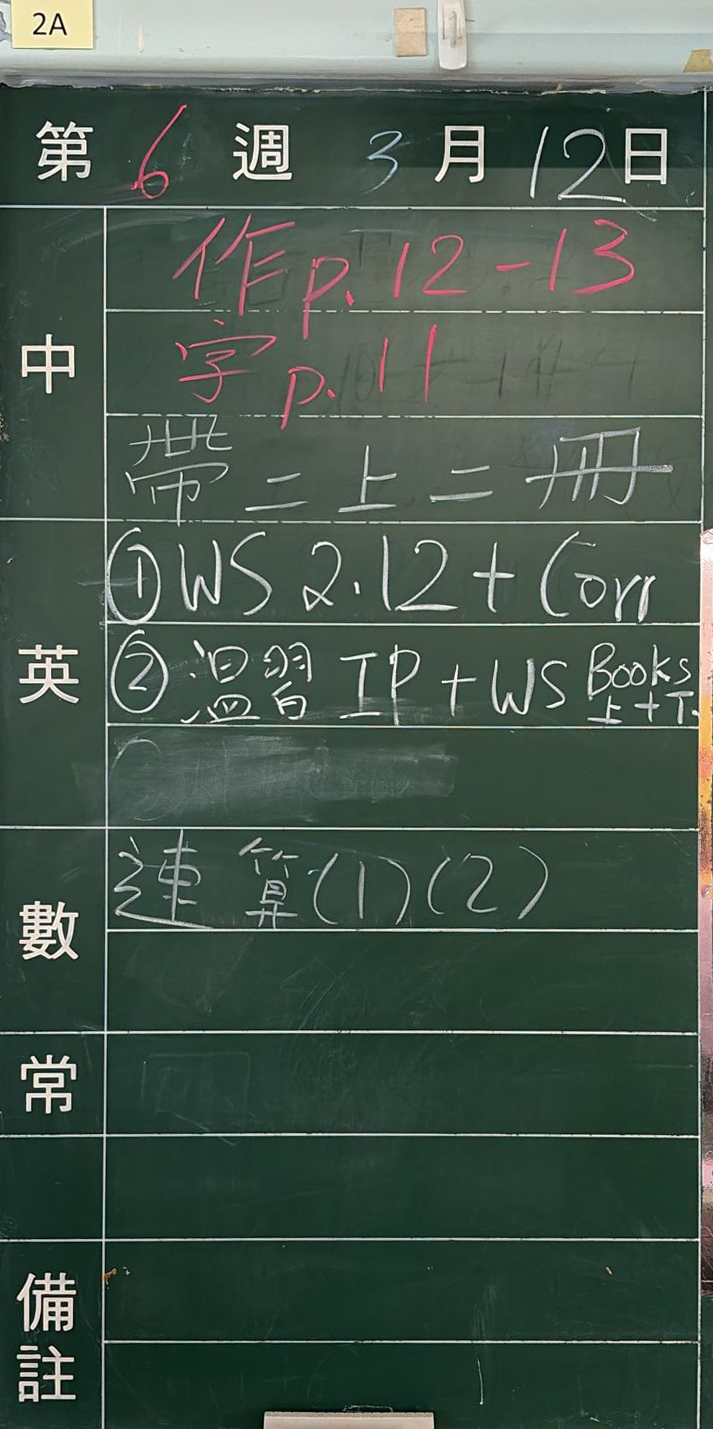 2A
第 6 週 3 月 12 日
中
作 p.12-13
字 p.11
帶二上二冊
英
① WS 2.12 + Corr
② 溫習 IP + WS Books 上+下.
數
速算(1)(2)
常
備註